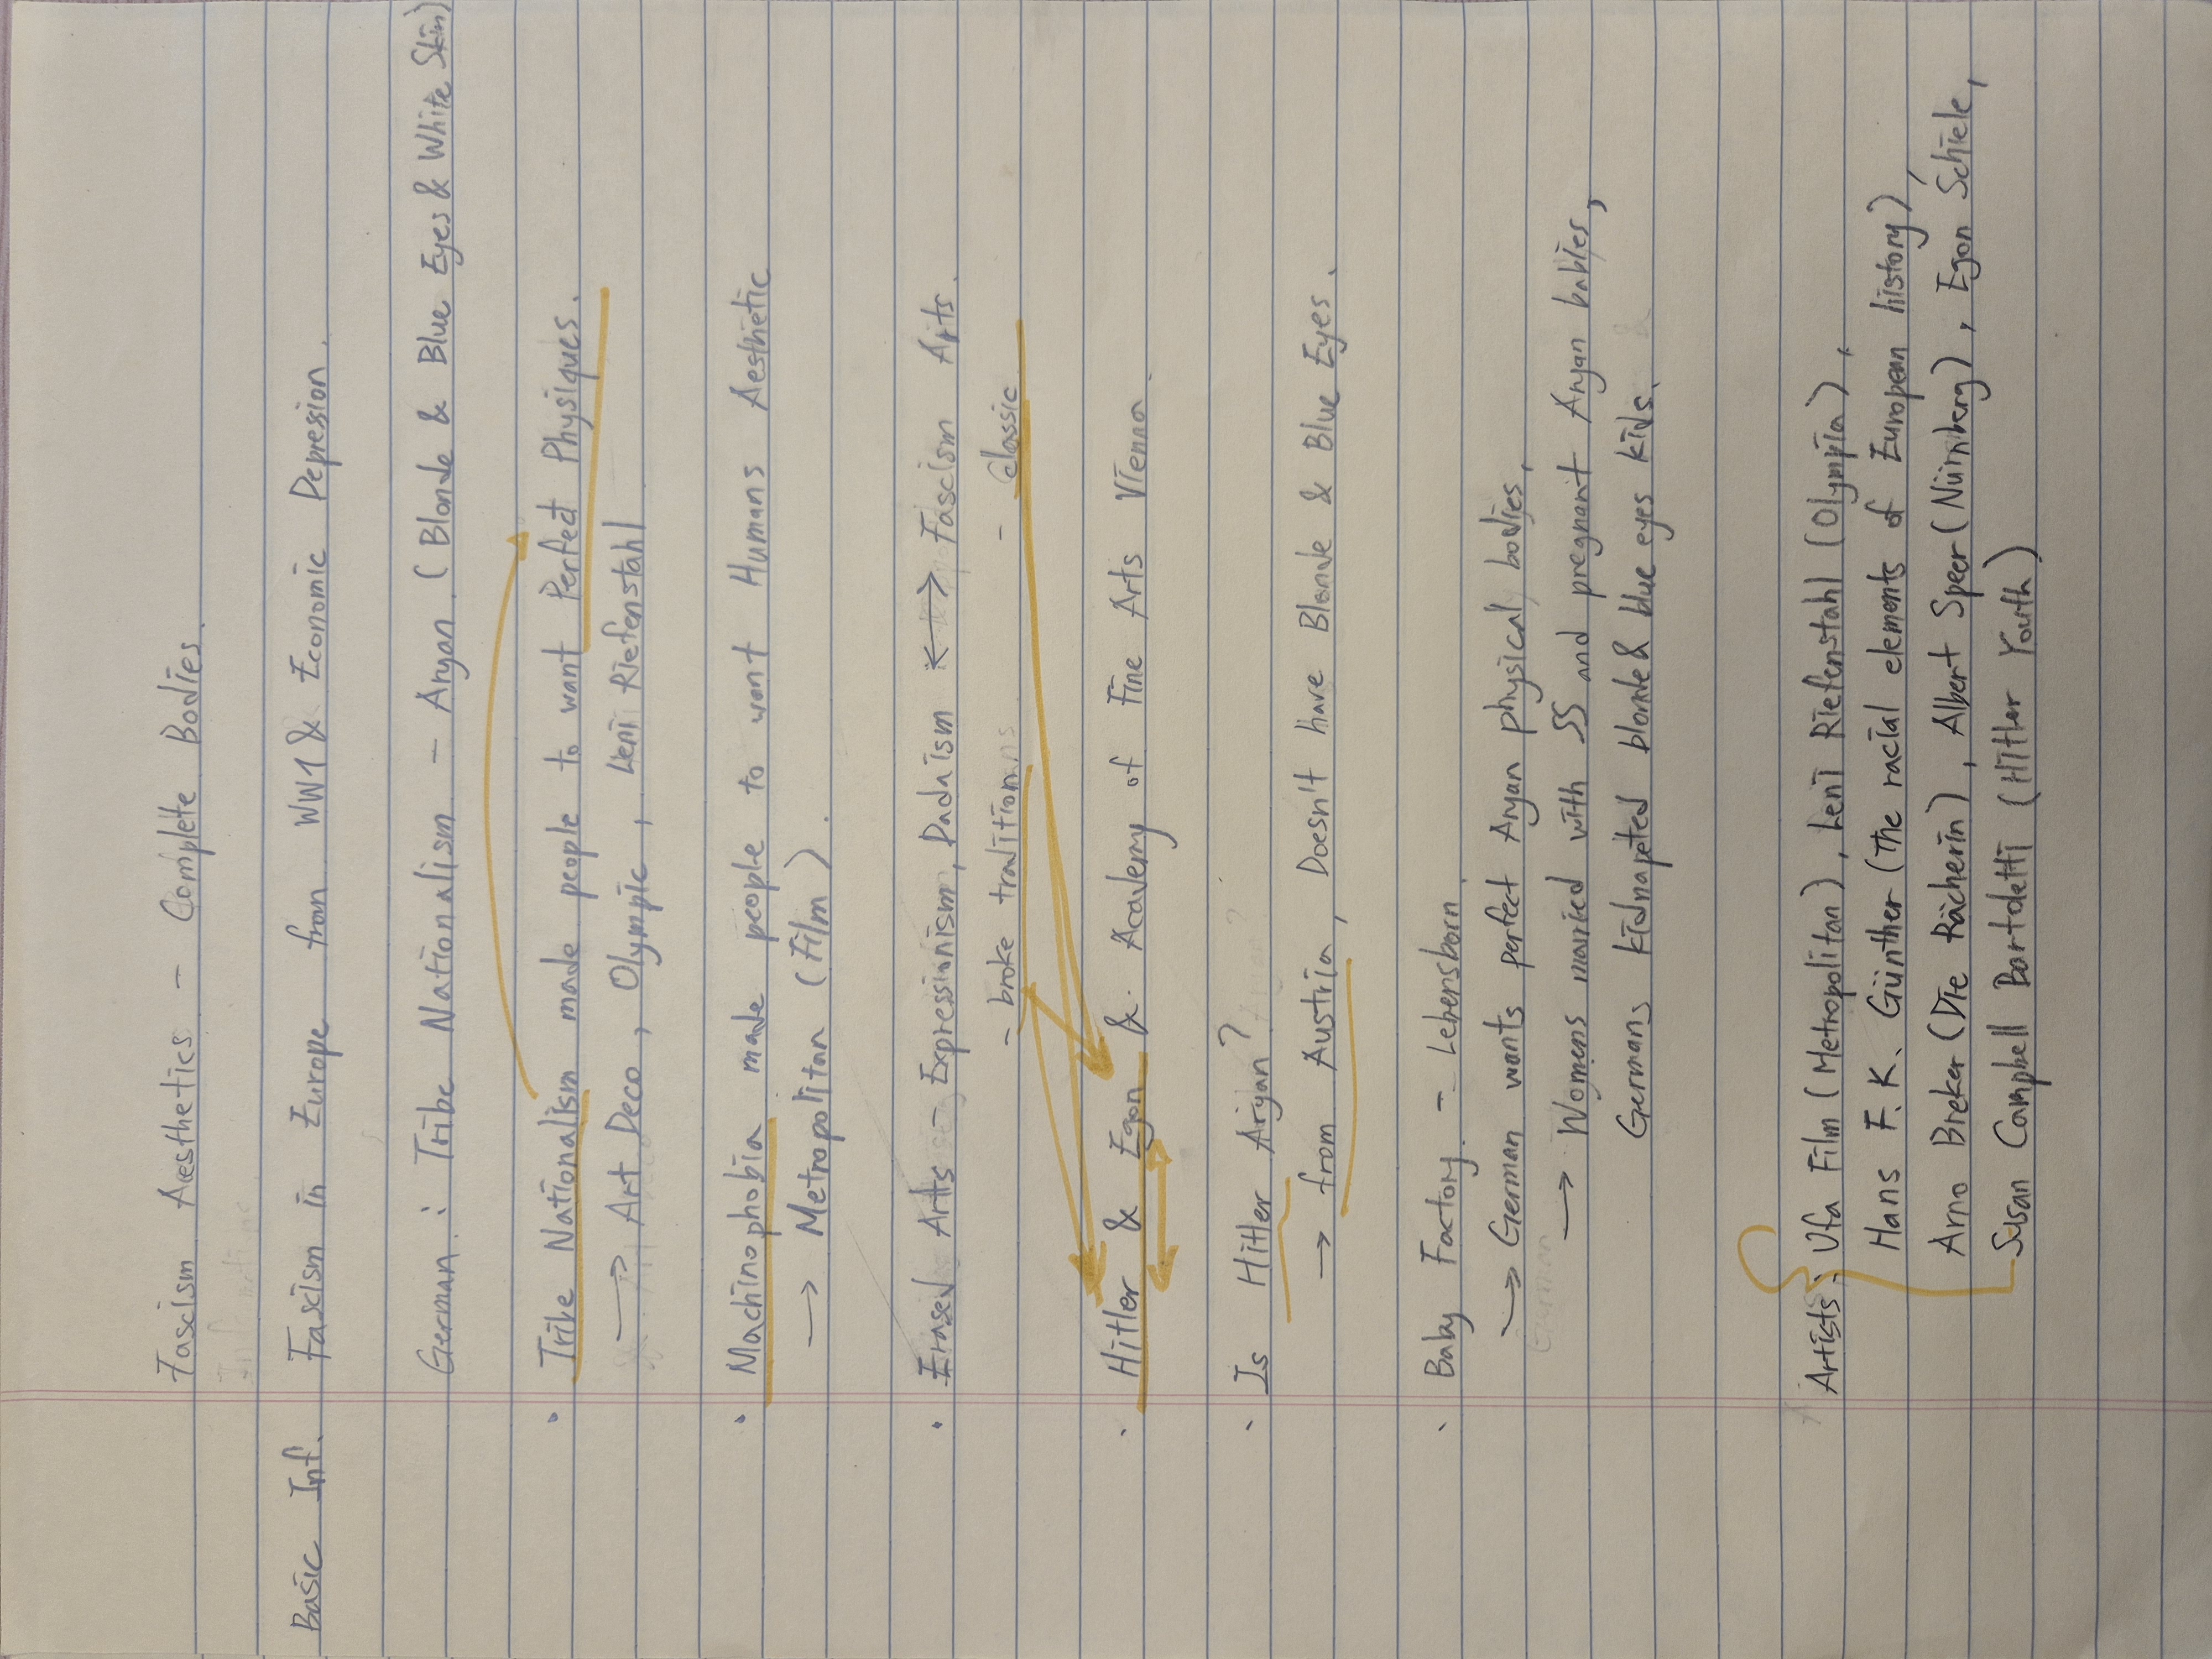 Fascism Aesthetics - Complete Bodies.
Basic Inf. Faxism in Europe from WW1 & Economic Depression.
German : Tribe Nationalism - Aryan (Blonde & Blue Eyes & White Skin)
• Tribe Nationalism made people to want Perfect Physiques.
→ Art Deco, Olympic, Leni Riefenstahl
• Machinophobia made people to want Humans Aesthetic
→ Metropolitan (Film).
• Erased Arts - Expressionism, Dadaism ↔ Fascism Arts.
- broke traditions - classic
• Hitler & Egon & Academy of Fine Arts Vienna.
• Is Hitler Aryan?
→ from Austria, Doesn't have Blonde & Blue Eyes.
• Baby Factory - Lebensborn.
→ German wants perfect Aryan physical bodies,
→ Womens maried with SS and pregnant Aryan babies,
Germans kidnapeted blonde & blue eyes kids.
Artists: Ufa Film (Metropolitan), Leni Riefenstahl (Olympia),
Hans F. K. Günther (The racial elements of European history),
Arno Breker (Die Rächerin), Albert Speer (Nürnberg), Egon Schiele,
Susan Campbell Bartoletti (Hitler Youth)